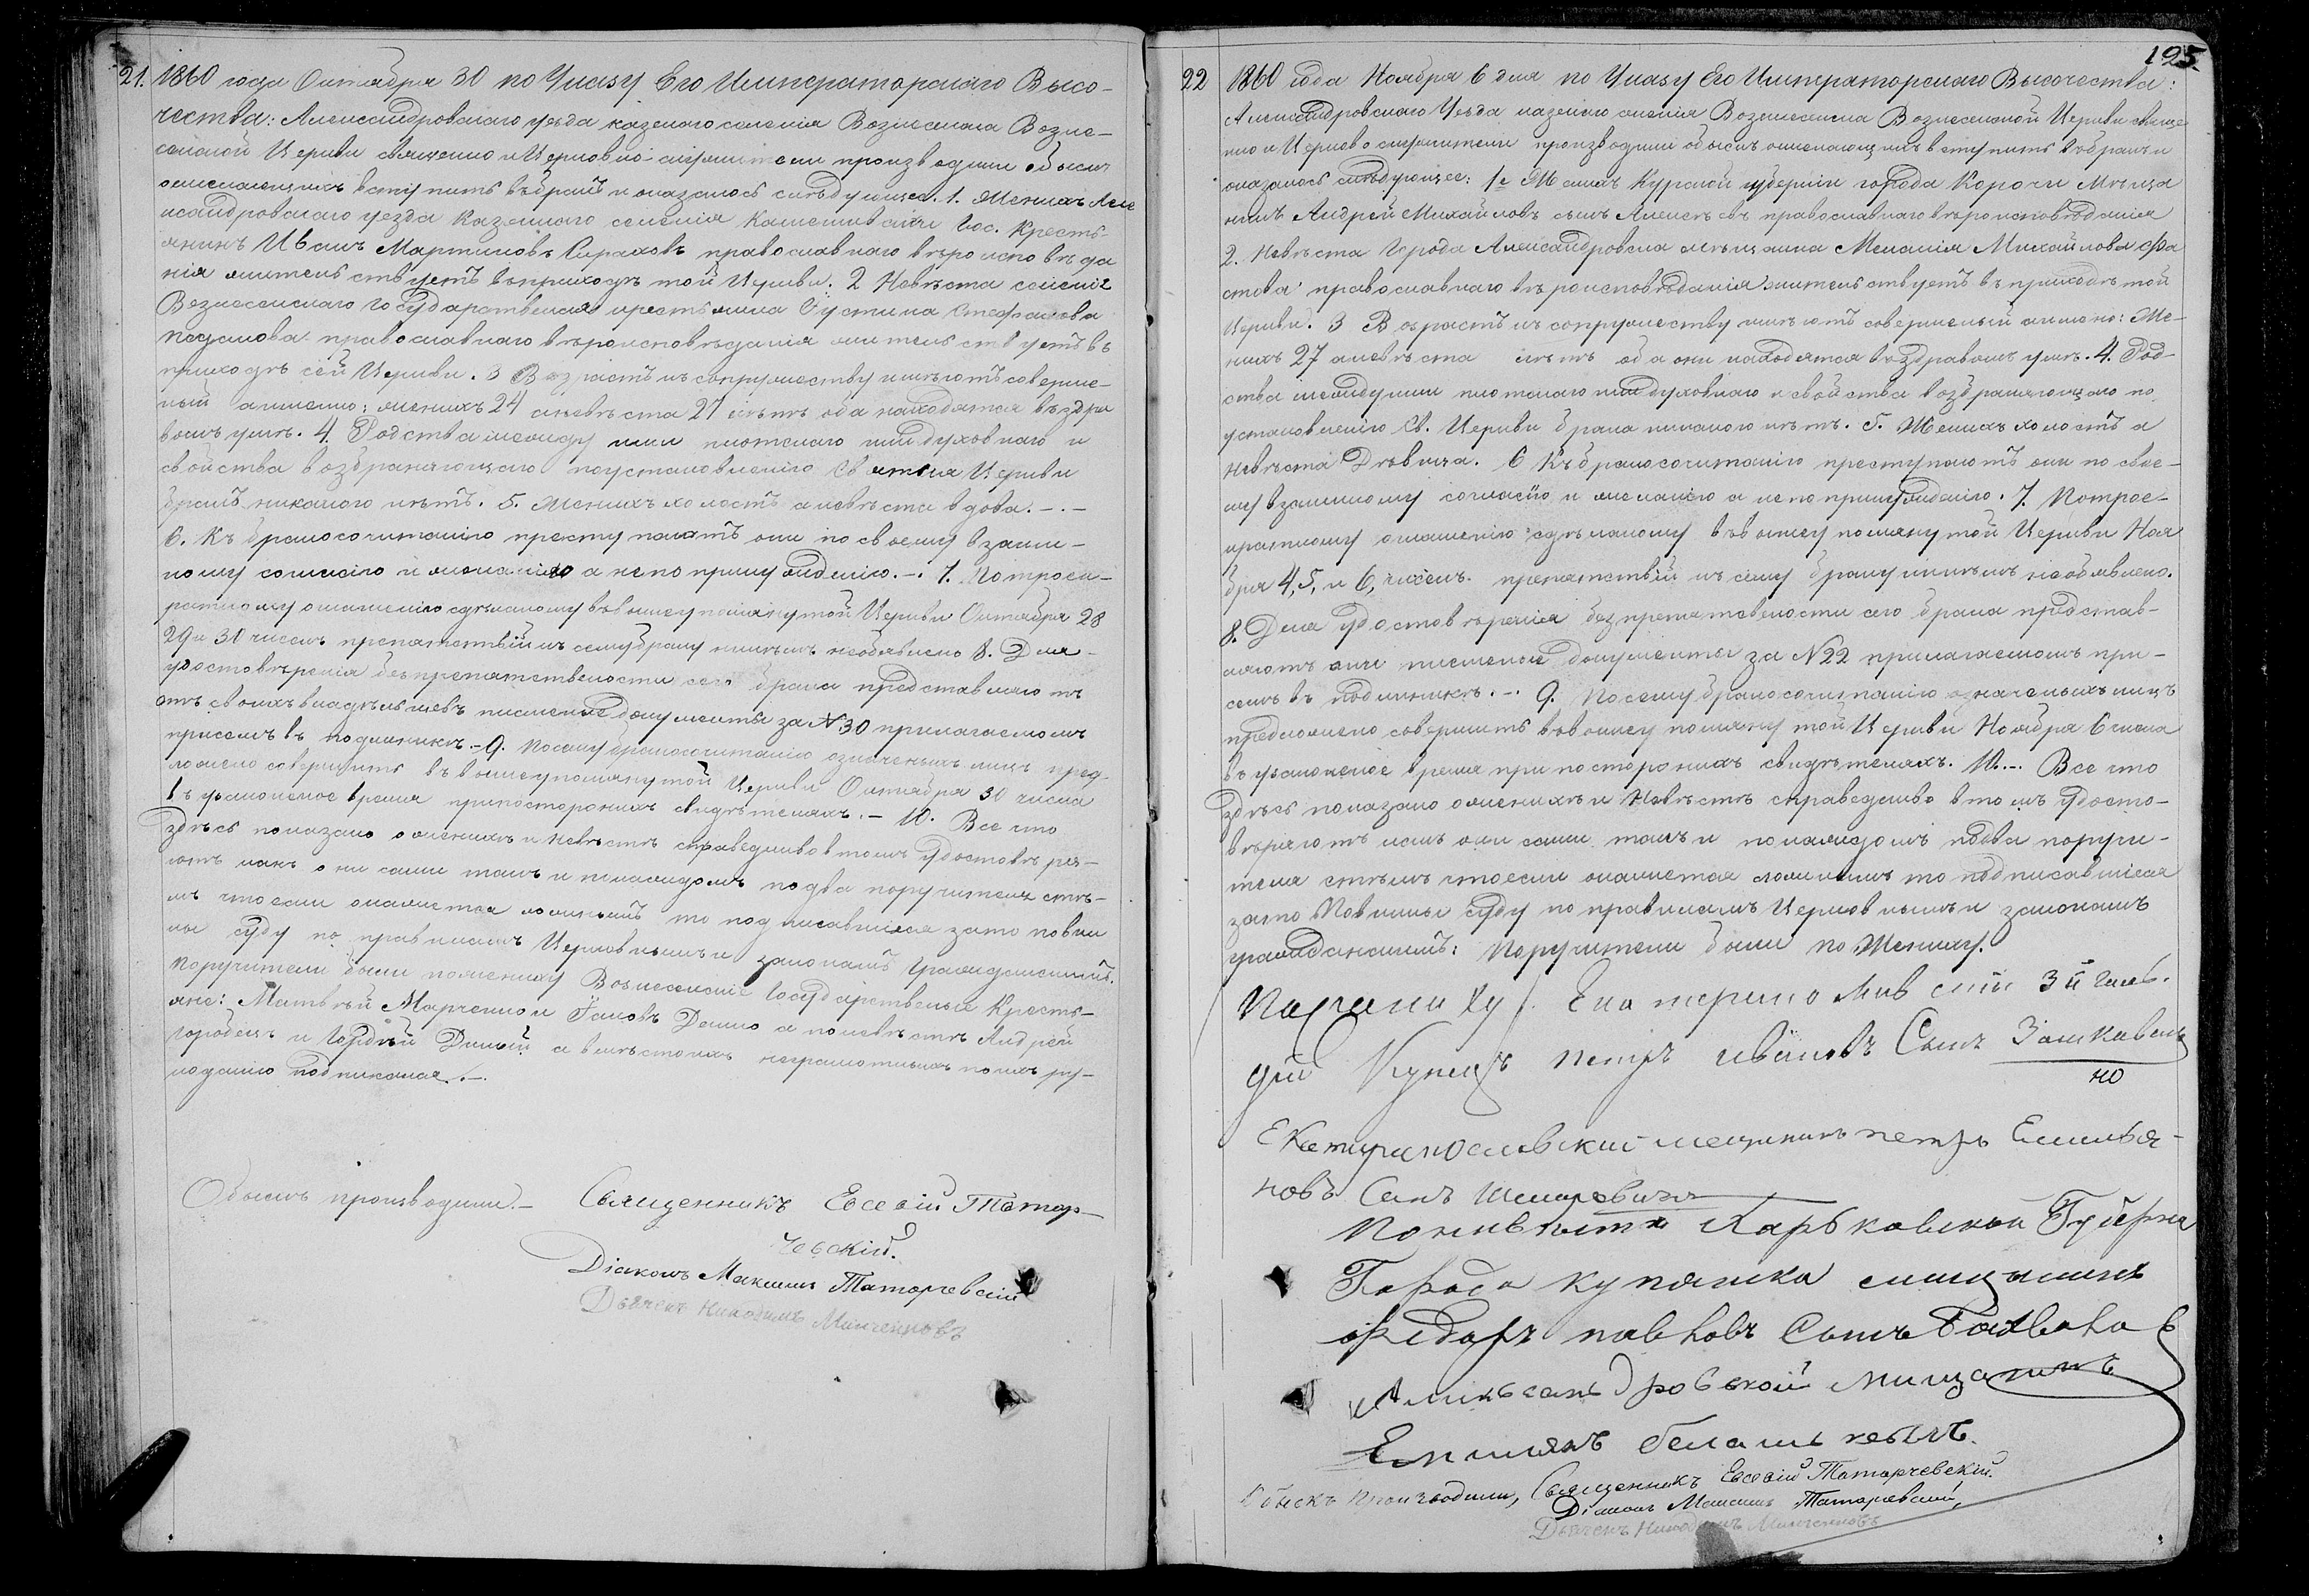 21. 1860 года Октября 30 по Указу Его Императорскаго Высо-
чества: Александровскаго уезда казенаго селенія Вознесенска Возне-
сенской Церкви священно и Церковно-служители производили обыскъ
о желающихъ вступить въ бракъ и оказалось слѣдующее. 1. Женихъ Алек
сандровскаго уезда Казеннаго селенія Гос. Кресть-
янинъ Иванъ Мартиновъ православнаго вѣроисповѣда
нія жительствуетъ въ приходѣ той Церкви. 2 Невѣста селенія
Вознесенскаго Государственая крестьянка Іустина Стефанова
православнаго вѣроисповѣданія жительствуетъ въ
приходѣ сей Церкви. 3 Возрастъ къ супружеству имѣютъ соверше-
ный а именно: женихъ 24 а невѣста 27 лѣтъ оба находятся въ здра
вомъ умѣ. 4. Родства между ими плотскаго или духовнаго и
свойства возбраняющаго по установленію Святыя Церкви
бракъ никакого нѣтъ. 5. Женихъ холостъ а невѣста вдова. -.-
6. Къ бракосочитанію преступаютъ они по своему взаим-
ному согласію и желанію а не по принужденію. -. 7. По трое к-
ратному оглашенію сдѣланому въ вышеупомянутой Церкви Октября 28
29 и 30 чиселъ препятствій къ сему браку никѣмъ необявлено 8. Для
удостовѣренія безпрепятствености сего брака представляютъ
отъ своихъ владѣльцевъ писменые документы за №30 прилагаемомъ
при семъ въ подлиникѣ. -9. По сему бракосочитанію означеныхъ лицъ пред-
ложено совершить въ вышеупомянутой Церкви Октября 30 числа
въ узаконеное время при постороннихъ свидѣтеляхъ. - 10. Все что
здѣсь показано о женихѣ и невѣстѣ справедливо в томъ удостовѣря-
ютъ какъ они сами такъ и по каждомъ по два поручителя стѣ-
мъ что если окажется ложнымъ то подписавшіеся за то повин
ны суду по правиламъ Церковнымъ и законамъ гражданскимъ.
Поручители были по жениху Вознесенскіе Государственые Кресть-
яне: Матвѣй Марченко и Яковъ Демко а по невѣстѣ Андрей
Городецъ и Гордѣй Дикой а вмѣсто ихъ неграмотныхъ по ихъ ру-
коданію подписался. -.
Обыскъ производили. - Священникъ Евсевій Татар-
чевскій.
Діаконъ Максимъ Татарчевскій
Дьячекъ Никодимъ Минченковъ
195
22 1860 года Ноября 6 дня по Указу Его Императорскаго Высочества:
Александровскаго Уезда казенаго селенія Вознесенска Вознесенской Церкви свяще
нно и Церковослужители производили обыскъ о желающихъ вступить въ бракъ и
оказалось слѣдующее: 1е Женихъ Курской губерніи города Корочи Мѣща
нинъ Андрей Михайловъ сынъ православнаго вѣроисповѣданія
2. Невѣста Города Александровска мѣщанка Меланія Михайлова Фа
стова православнаго вѣроисповѣданія жительствуетъ въ приходѣ той
Церкви. 3 Возрастъ къ супружеству имѣютъ совершеный а имено: Же-
нихъ 27 а невѣста лѣтъ оба они находятся въ здравомъ умѣ. 4. Род-
ства между ими плотскаго или духовнаго и свойства возбраняющаго по
установленію Св. Церкви брака никакого нѣтъ. 5. Женихъ холостъ а
невѣста Дѣвица. 6 Къ бракосочитанію преступаютъ они по свое-
му взаимному согласію и желанію а не по принужденію. 7. По трое-
кратному оглашенію сдѣланому въ вышеупомянутой Церкви Ноя
бря 4, 5, и 6, чиселъ препятствій къ сему браку никѣмъ необявлено.
8. Для удостовѣренія безпрепятствености сего брака представ-
ляютъ они писменые документы за №22 прилагаемомъ при-
семъ въ подлиникѣ. -. 9. По сему бракосочитанію означеныхъ лицъ
предложено совершить въ вышеупомянутой Церкви Ноября 6 числа
въ узаконеное время при посторонихъ свидѣтеляхъ. 10. -. Все что
здѣсь показано о женихѣ и Невѣстѣ справедливо в томъ удосто-
вѣряютъ какъ они сами такъ и по каждомъ по два поручи-
теля стѣмъ что если окажется ложнымъ то подписавшіеся
за то Повинны суду по правиламъ Церковнымъ и законамъ
гражданскимъ: Поручители были по Жениху.
По жениху Екатеринославскій 3й гиль-
діи Купецъ Петръ Ивановъ Сынъ
но
Екатеринославский мещанинъ петръ Емелья-
новъ Санъ
По невѣсти Харьковской Губерни
Города купянска
Федоръ павловъ Сынъ
Аликсандровской мищанинъ
Емильянъ
Обыскъ производили, Священникъ Евсевій Татарчевскій.
Діаконъ Максимъ Татарчевскій,
Дьячекъ Никодимъ Минченковъ